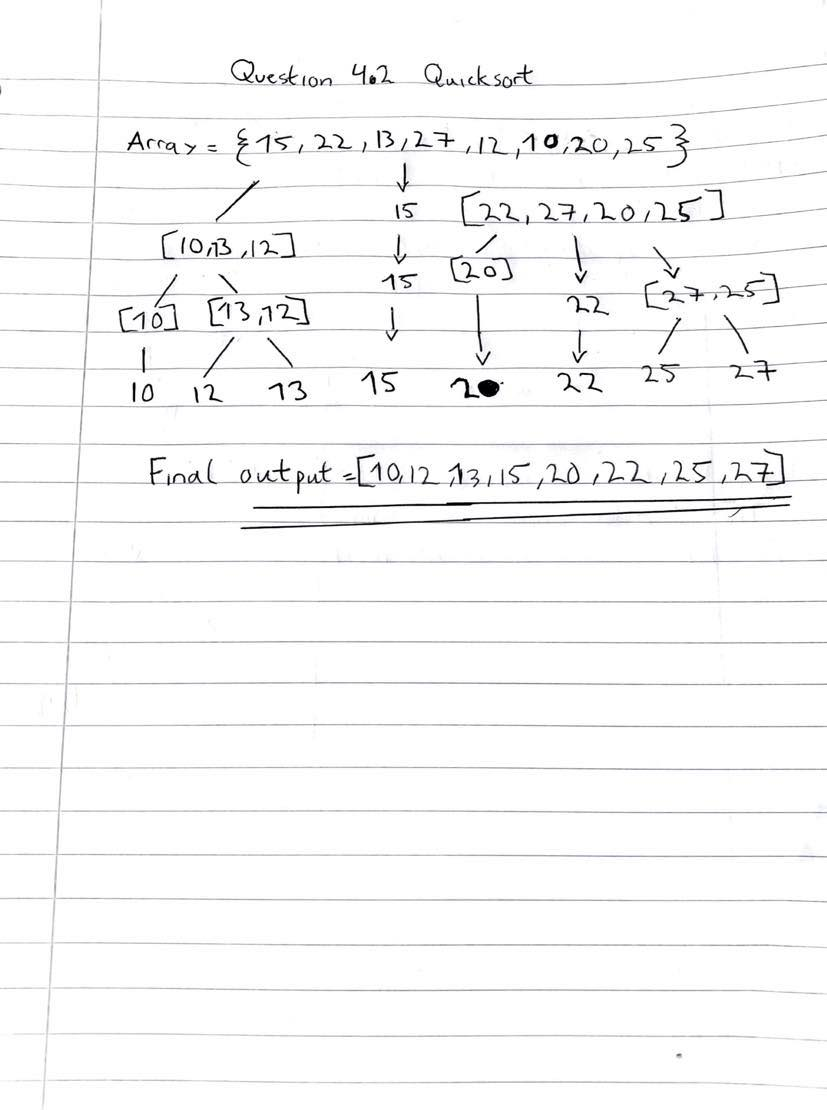 Question 4.2 Quicksort
Array = {15, 22, 13, 27, 12, 10, 20, 25}
15 [22, 27, 20, 25]
[10, 13, 12]
15 [20]
[10] [13, 12] 22 [27, 25]
10 12 13 15 20 22 25 27
Final output = [10, 12, 13, 15, 20, 22, 25, 27]